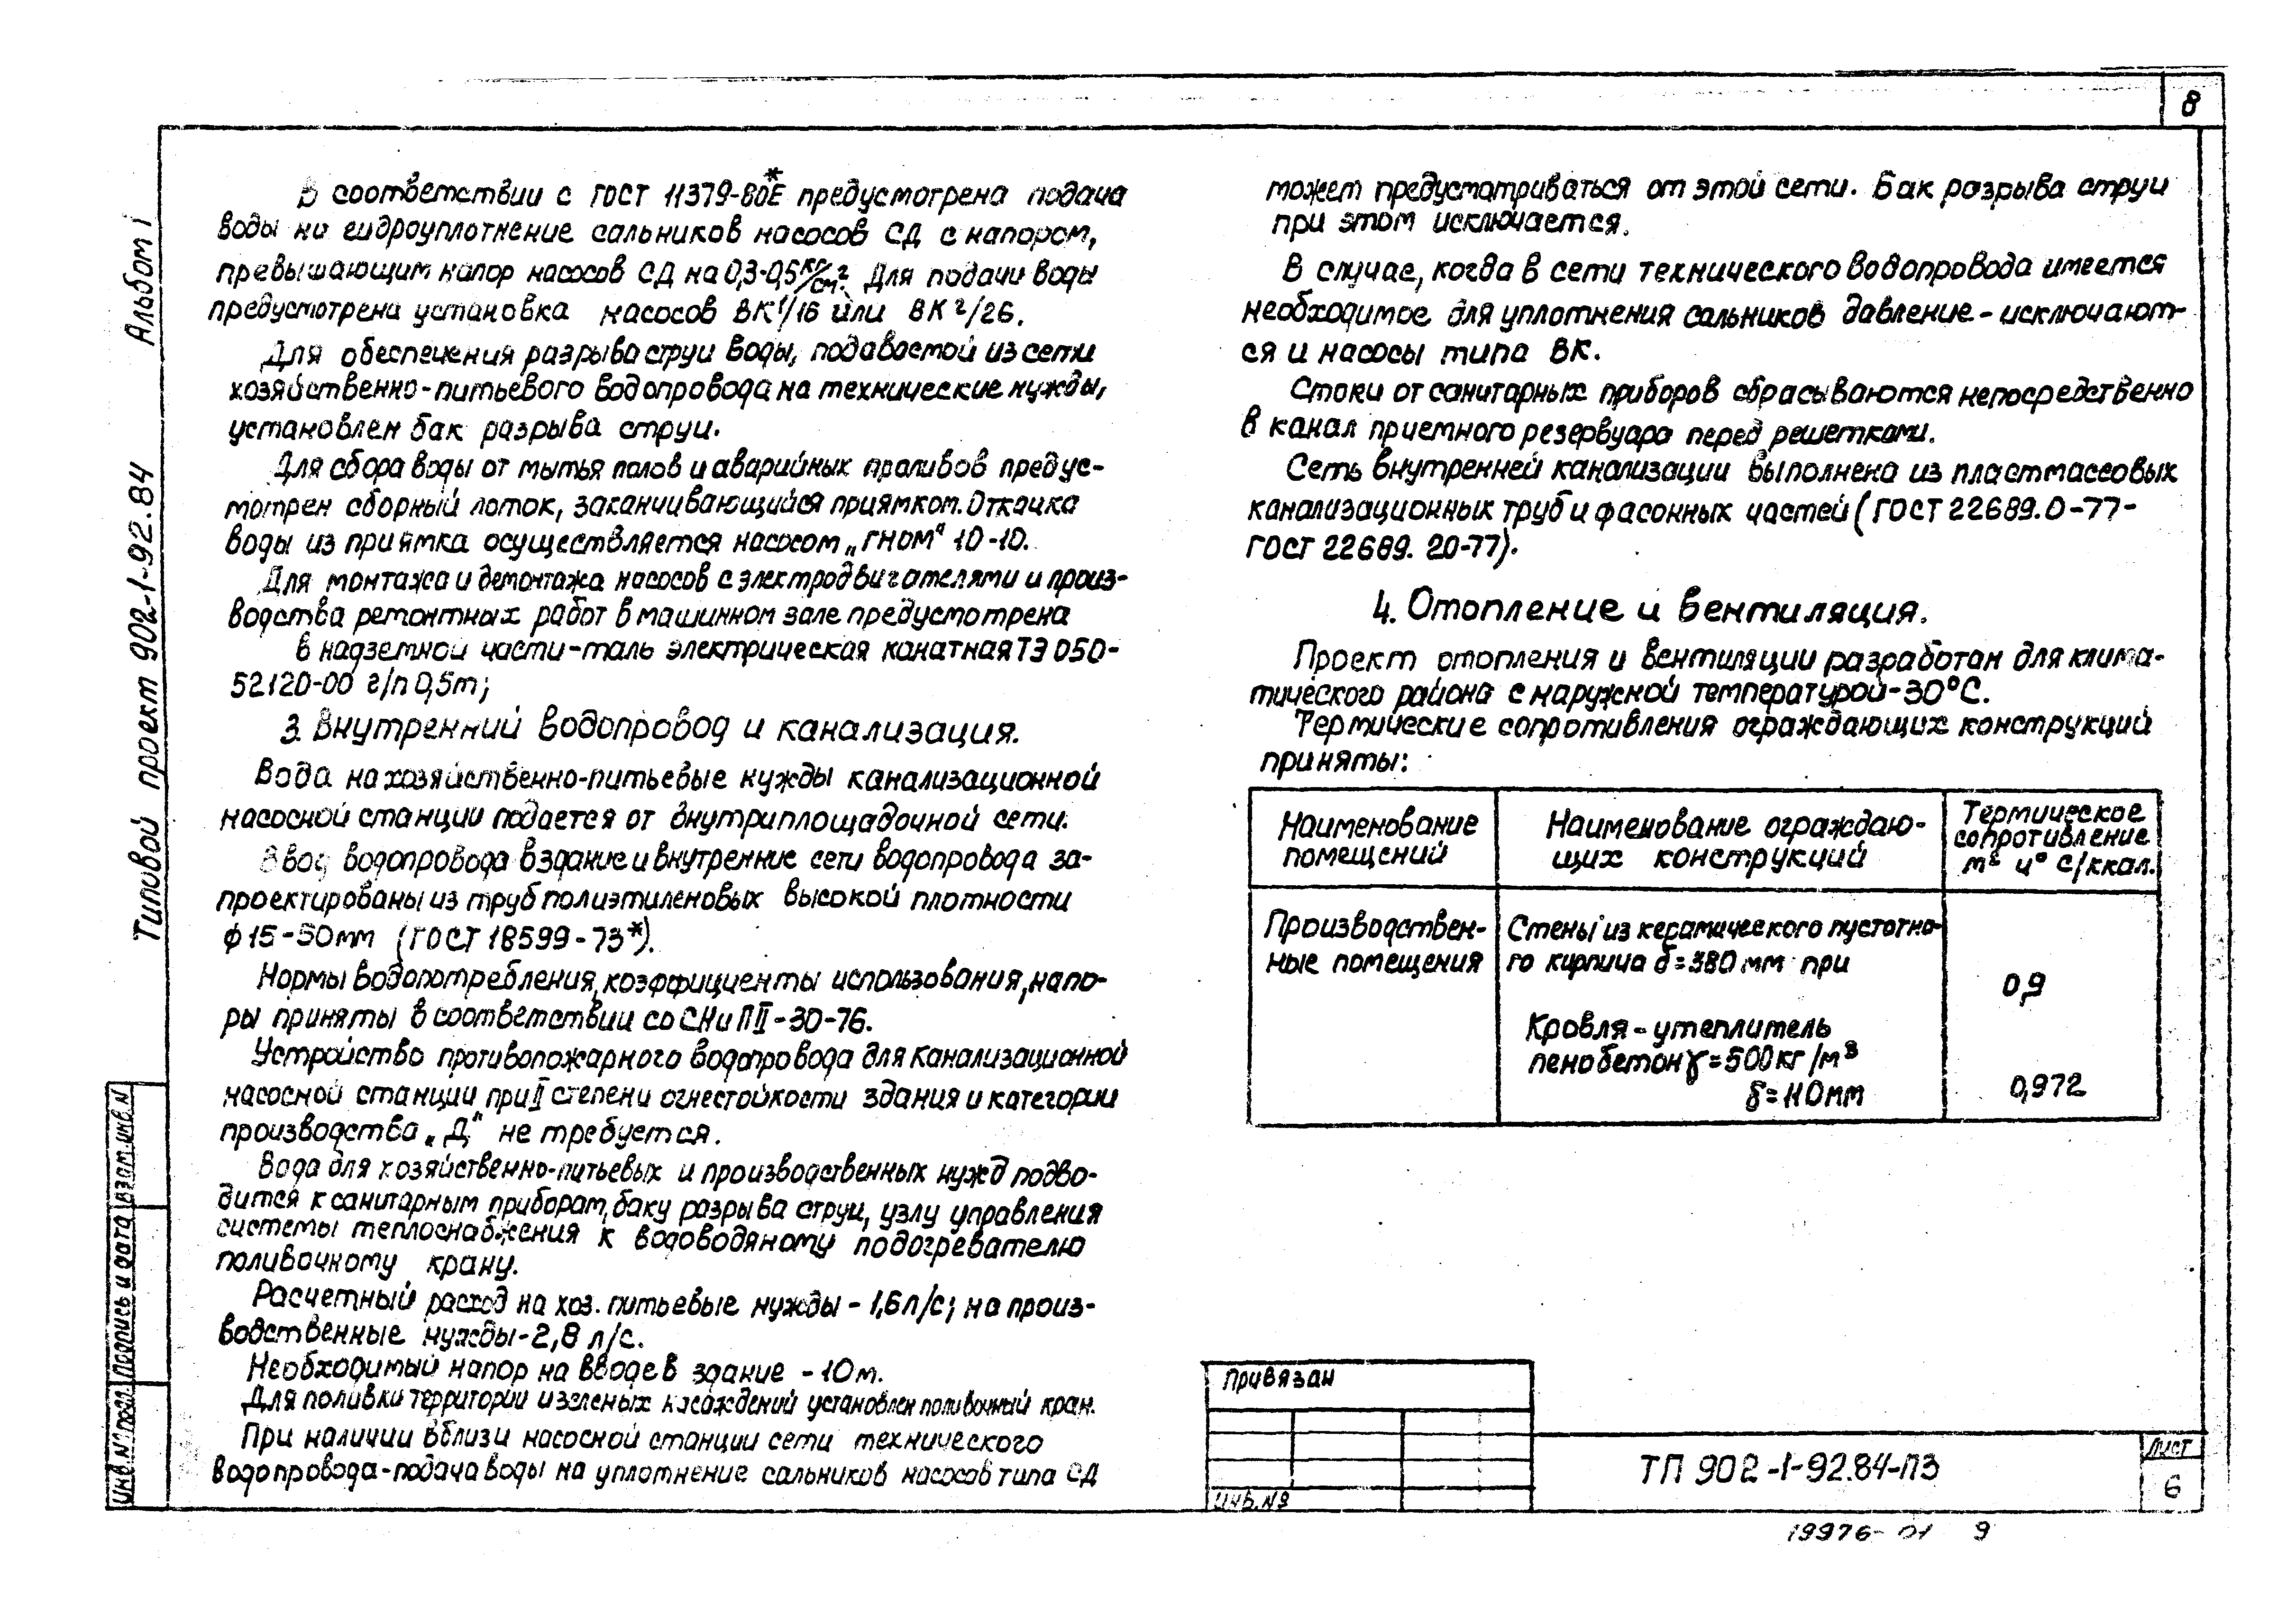 8
Альбом I
Типовой проект 902-1-92.84
В соответствии с ГОСТ 11379-80Е* предусмотрена подача
воды на гидроуплотнение сальников насосов СД с напором,
превышающим напор насосов СД на 0,3-0,5 кг/см². Для подачи воды
предусмотрена установка насосов ВК 1/16 или ВК 2/26.
Для обеспечения разрыва струи воды, подаваемой из сети
хозяйственно-питьевого водопровода на технические нужды,
установлен бак разрыва струи.
Для сбора воды от мытья полов и аварийных проливов предус-
мотрен сборный лоток, заканчивающийся приямком. Откачка
воды из приямка осуществляется насосом „ГНОМ" 10-10.
Для монтажа и демонтажа насосов с электродвигателями и произ-
водства ремонтных работ в машинном зале предусмотрена
в надземной части-таль электрическая канатная ТЭ 050-
52120-00 г/п 0,5т;
3. Внутренний водопровод и канализация.
Вода на хозяйственно-питьевые нужды канализационной
насосной станции подается от внутриплощадочной сети.
Ввод водопровода в здание и внутренние сети водопровода за-
проектированы из труб полиэтиленовых высокой плотности
ф 15-50мм (ГОСТ 18599-73*).
Нормы водопотребления, коэффициенты использования, напо-
ры приняты в соответствии со СНиП II-30-76.
Устройство противопожарного водопровода для канализационной
насосной станции при II степени огнестойкости здания и категории
производства „Д" не требуется.
Вода для хозяйственно-питьевых и производственных нужд подво-
дится к санитарным приборам, баку разрыва струи, узлу управления
системы теплоснабжения к водоводяному подогревателю
поливочному крану.
Расчетный расход на хоз. питьевые нужды - 1,6 л/с; на произ-
водственные нужды-2,8 л/с.
Необходимый напор на вводе в здание - 10м.
Для поливки территории и зеленых насаждений установлен поливочный кран.
При наличии вблизи насосной станции сети технического
водопровода-подача воды на уплотнение сальников насосов типа СД
может предусматриваться от этой сети. Бак разрыва струи
при этом исключается.
В случае, когда в сети технического водопровода имеется
необходимое для уплотнения сальников давление - исключают-
ся и насосы типа ВК.
Стоки от санитарных приборов сбрасываются непосредственно
в канал приемного резервуара перед решетками.
Сеть внутренней канализации выполнена из пластмассовых
канализационных труб и фасонных частей (ГОСТ 22689.0-77-
ГОСТ 22689. 20-77).
4. Отопление и вентиляция.
Проект отопления и вентиляции разработан для клима-
тического района с наружной температурой-30°С.
Термические сопротивления ограждающих конструкций
приняты:
Наименование помещений
Наименование ограждаю-
щих конструкций
Термическое
сопротивление
м² ч° С/ккал.
Производствен-
ные помещения
Стены из керамического пустотно-
го кирпича δ=380мм при
0,9
Кровля-утеплитель
пенобетон γ=500кг/м³
δ=110мм
0,972
Привязан
Инв.№
ТП 902-1-92.84-ПЗ
Лист
6
19976-01 9
Инв.№ подл. Подпись и дата Взам.инв.№